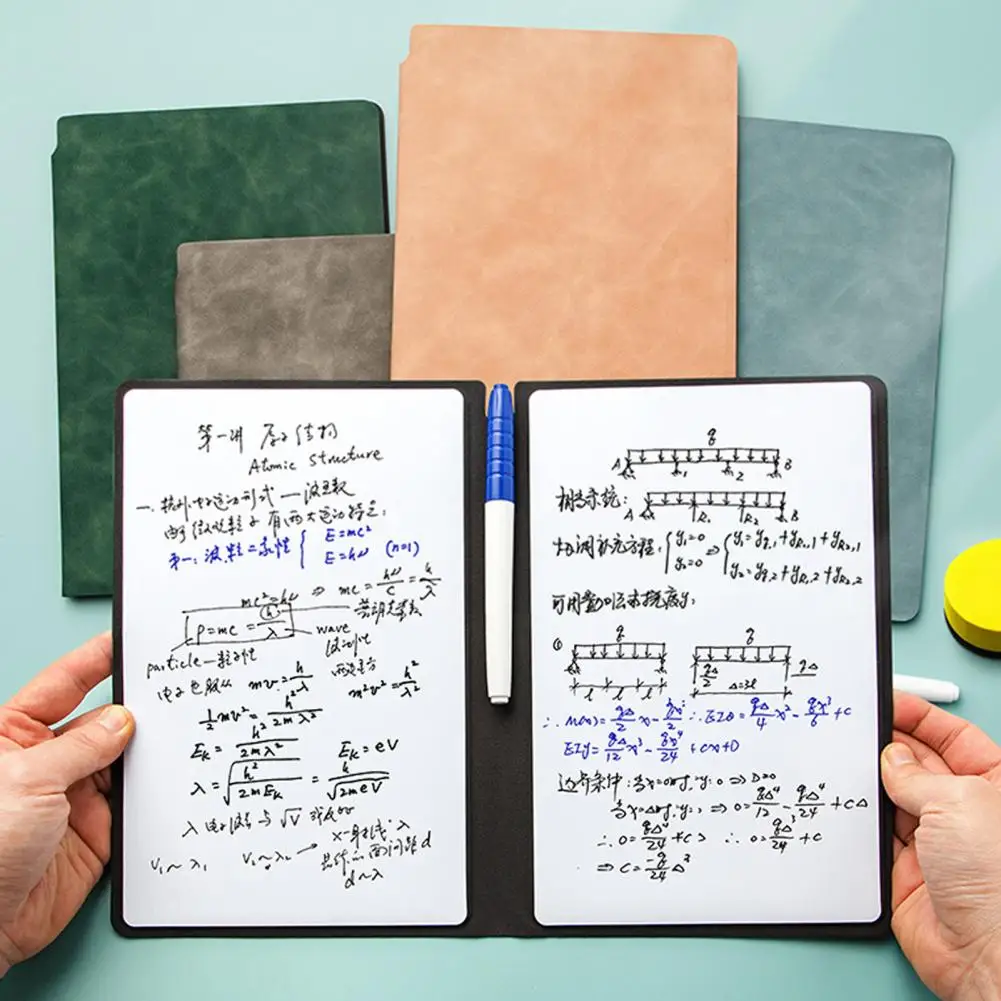 第一讲 原子结构
Atomic Structure
一、核外电子运动形式——波函数
由于微观粒子有两大运动特定:
第一:波粒二象性 { E=mc²
E=hν (n=1)
mc²=hν ⇒ mc = hν/C = h/λ
P=mc = h/λ
particle—粒子性 wave 波动性
电子也服从 mv = h/λ m²v² = h²/λ²
½mv² = h²/2mλ²
E_K = h²/2mλ² E_K = eV
λ = √(h²/2mE_K) = h/√(2meV)
λ 电子波长与 √V 或反比
X-射线: λ
V₁~λ₁ V₂~λ₂ → 晶体的面间距d
d~λ
q
A 1 2 B
相当系统:
A R₁ R₂ B
协调补充方程: {y₁=0 y₂=0 ⇒ {y₁=y_{q,1}+y_{R₁,1}+y_{R₂,1}
y₂=y_{q,2}+y_{R₁,2}+y_{R₂,2}
可用叠加法求挠度y:
① q q
l l l qΔ/2 Δ=3l qΔ
∴ M(x)=qΔ/2 x - qx²/2 ∴ EIθ = qΔ/4 x² - qx³/6 + C
EIy = qΔ/12 x³ - qx⁴/24 + Cx+D
边界条件: 当x=0时, y=0 ⇒ D=0
当x=Δ时, y=0 ⇒ 0 = qΔ⁴/12 - qΔ⁴/24 + CΔ
∴ 0 = qΔ⁴/24 + CΔ ∴ 0 = qΔ³/24 + C
⇒ C = -q/24 Δ³